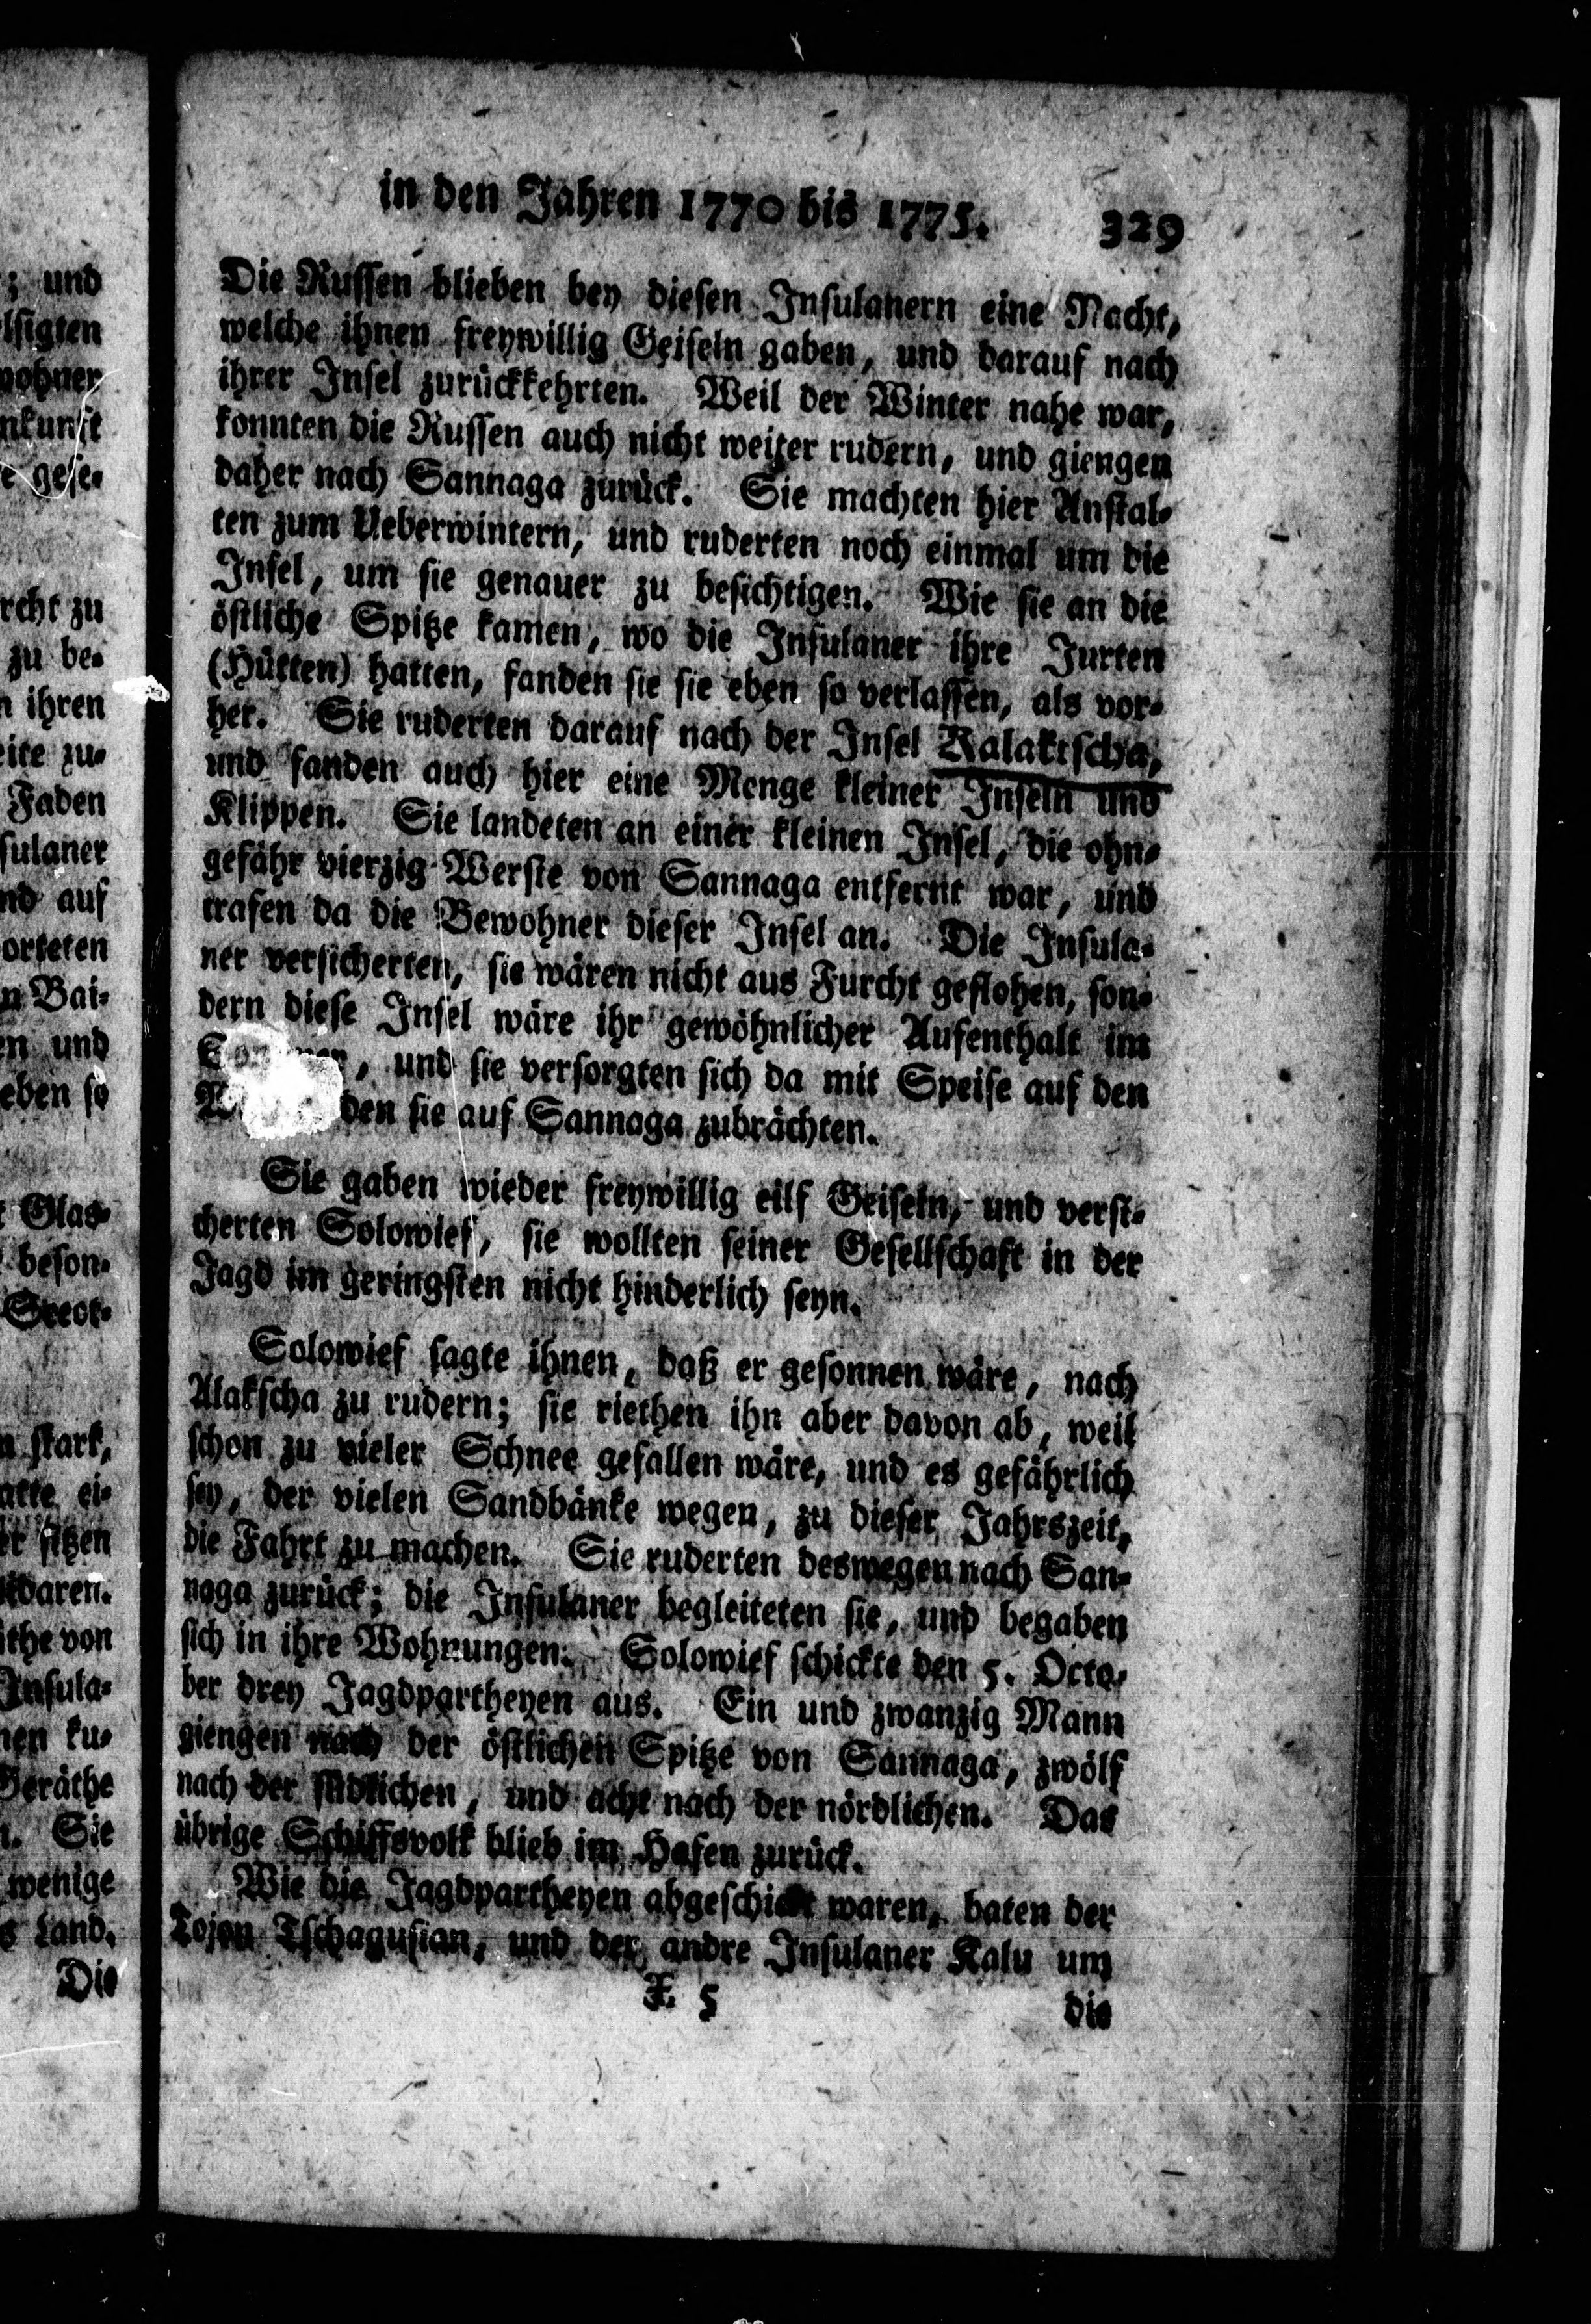 ; und
lsigten
wohner
nkunft
e gese-
rcht zu
zu be-
n ihren
eite zu-
Faden
sulaner
nd auf
orteten
n Bai-
en und
eben so
t Glas-
beson-
n stark,
atte ei-
er sitzen
idaren.
ithe von
Insula-
nen ku-
Geräthe
n. Sie
wenige
s Land.
Die
in den Jahren 1770 bis 1775. 329
Die Russen blieben bey diesen Insulanern eine Nacht,
welche ihnen freywillig Geiseln gaben, und darauf nach
ihrer Insel zurückkehrten. Weil der Winter nahe war,
konnten die Russen auch nicht weiter rudern, und giengen
daher nach Sannaga zurück. Sie machten hier Anstal-
ten zum Ueberwintern, und ruderten noch einmal um die
Insel, um sie genauer zu besichtigen. Wie sie an die
östliche Spitze kamen, wo die Insulaner ihre Jurten
(Hütten) hatten, fanden sie sie eben so verlassen, als vor-
her. Sie ruderten darauf nach der Insel Ralaktscha,
und fanden auch hier eine Menge kleiner Inseln und
Klippen. Sie landeten an einer kleinen Insel, die ohn-
gefähr vierzig Werste von Sannaga entfernt war, und
trafen da die Bewohner dieser Insel an. Die Insula-
ner versicherten, sie wären nicht aus Furcht geflohen, son-
dern diese Insel wäre ihr gewöhnlicher Aufenthalt im
, und sie versorgten sich da mit Speise auf den
den sie auf Sannaga zubrächten.
Sie gaben wieder freywillig eilf Geiseln, und versi-
cherten Solowief, sie wollten seiner Gesellschaft in der
Jagd im geringsten nicht hinderlich seyn.
Solowief sagte ihnen, daß er gesonnen wäre, nach
Alakscha zu rudern; sie riethen ihn aber davon ab, weil
schon zu vieler Schnee gefallen wäre, und es gefährlich
sey, der vielen Sandbänke wegen, zu dieser Jahrszeit,
die Fahrt zu machen. Sie ruderten deswegen nach San-
naga zurück; die Insulaner begleiteten sie, und begaben
sich in ihre Wohnungen. Solowief schickte den 5. Octo-
ber drey Jagdpartheyen aus. Ein und zwanzig Mann
giengen nach der östlichen Spitze von Sannaga, zwölf
nach der südlichen, und acht nach der nördlichen. Das
übrige Schiffsvolk blieb im Hafen zurück.
Wie die Jagdpartheyen abgeschickt waren, baten der
Tojon Tschagusian, und der andre Insulaner Kalu um
X 5 die